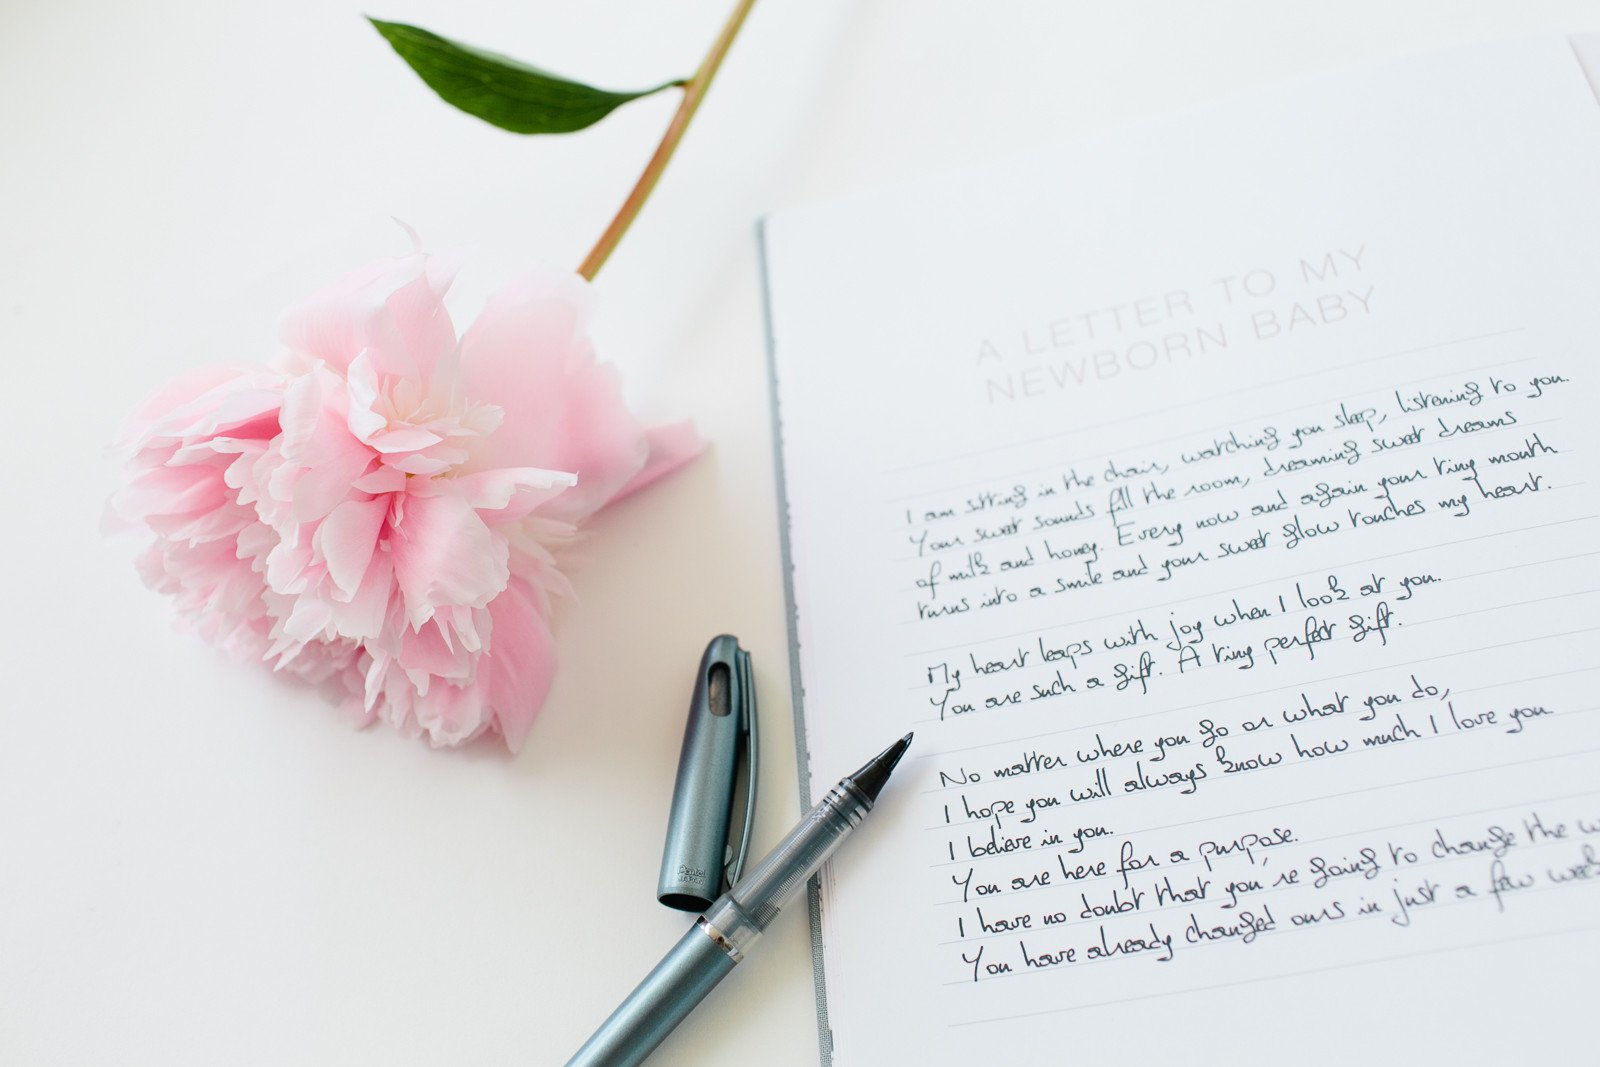 A LETTER TO MY
NEWBORN BABY
I am sitting in the chair, watching you sleep, listening to you.
Your sweet sounds fill the room, dreaming sweet dreams
of milk and honey. Every now and again your tiny mouth
turns into a smile and your sweet glow touches my heart.
My heart leaps with joy when I look at you.
You are such a gift. A tiny perfect gift.
No matter where you go or what you do,
I hope you will always know how much I love you.
I believe in you.
You are here for a purpose.
I have no doubt that you're going to change the w
You have already changed ours in just a few week
Pentel
JAPAN